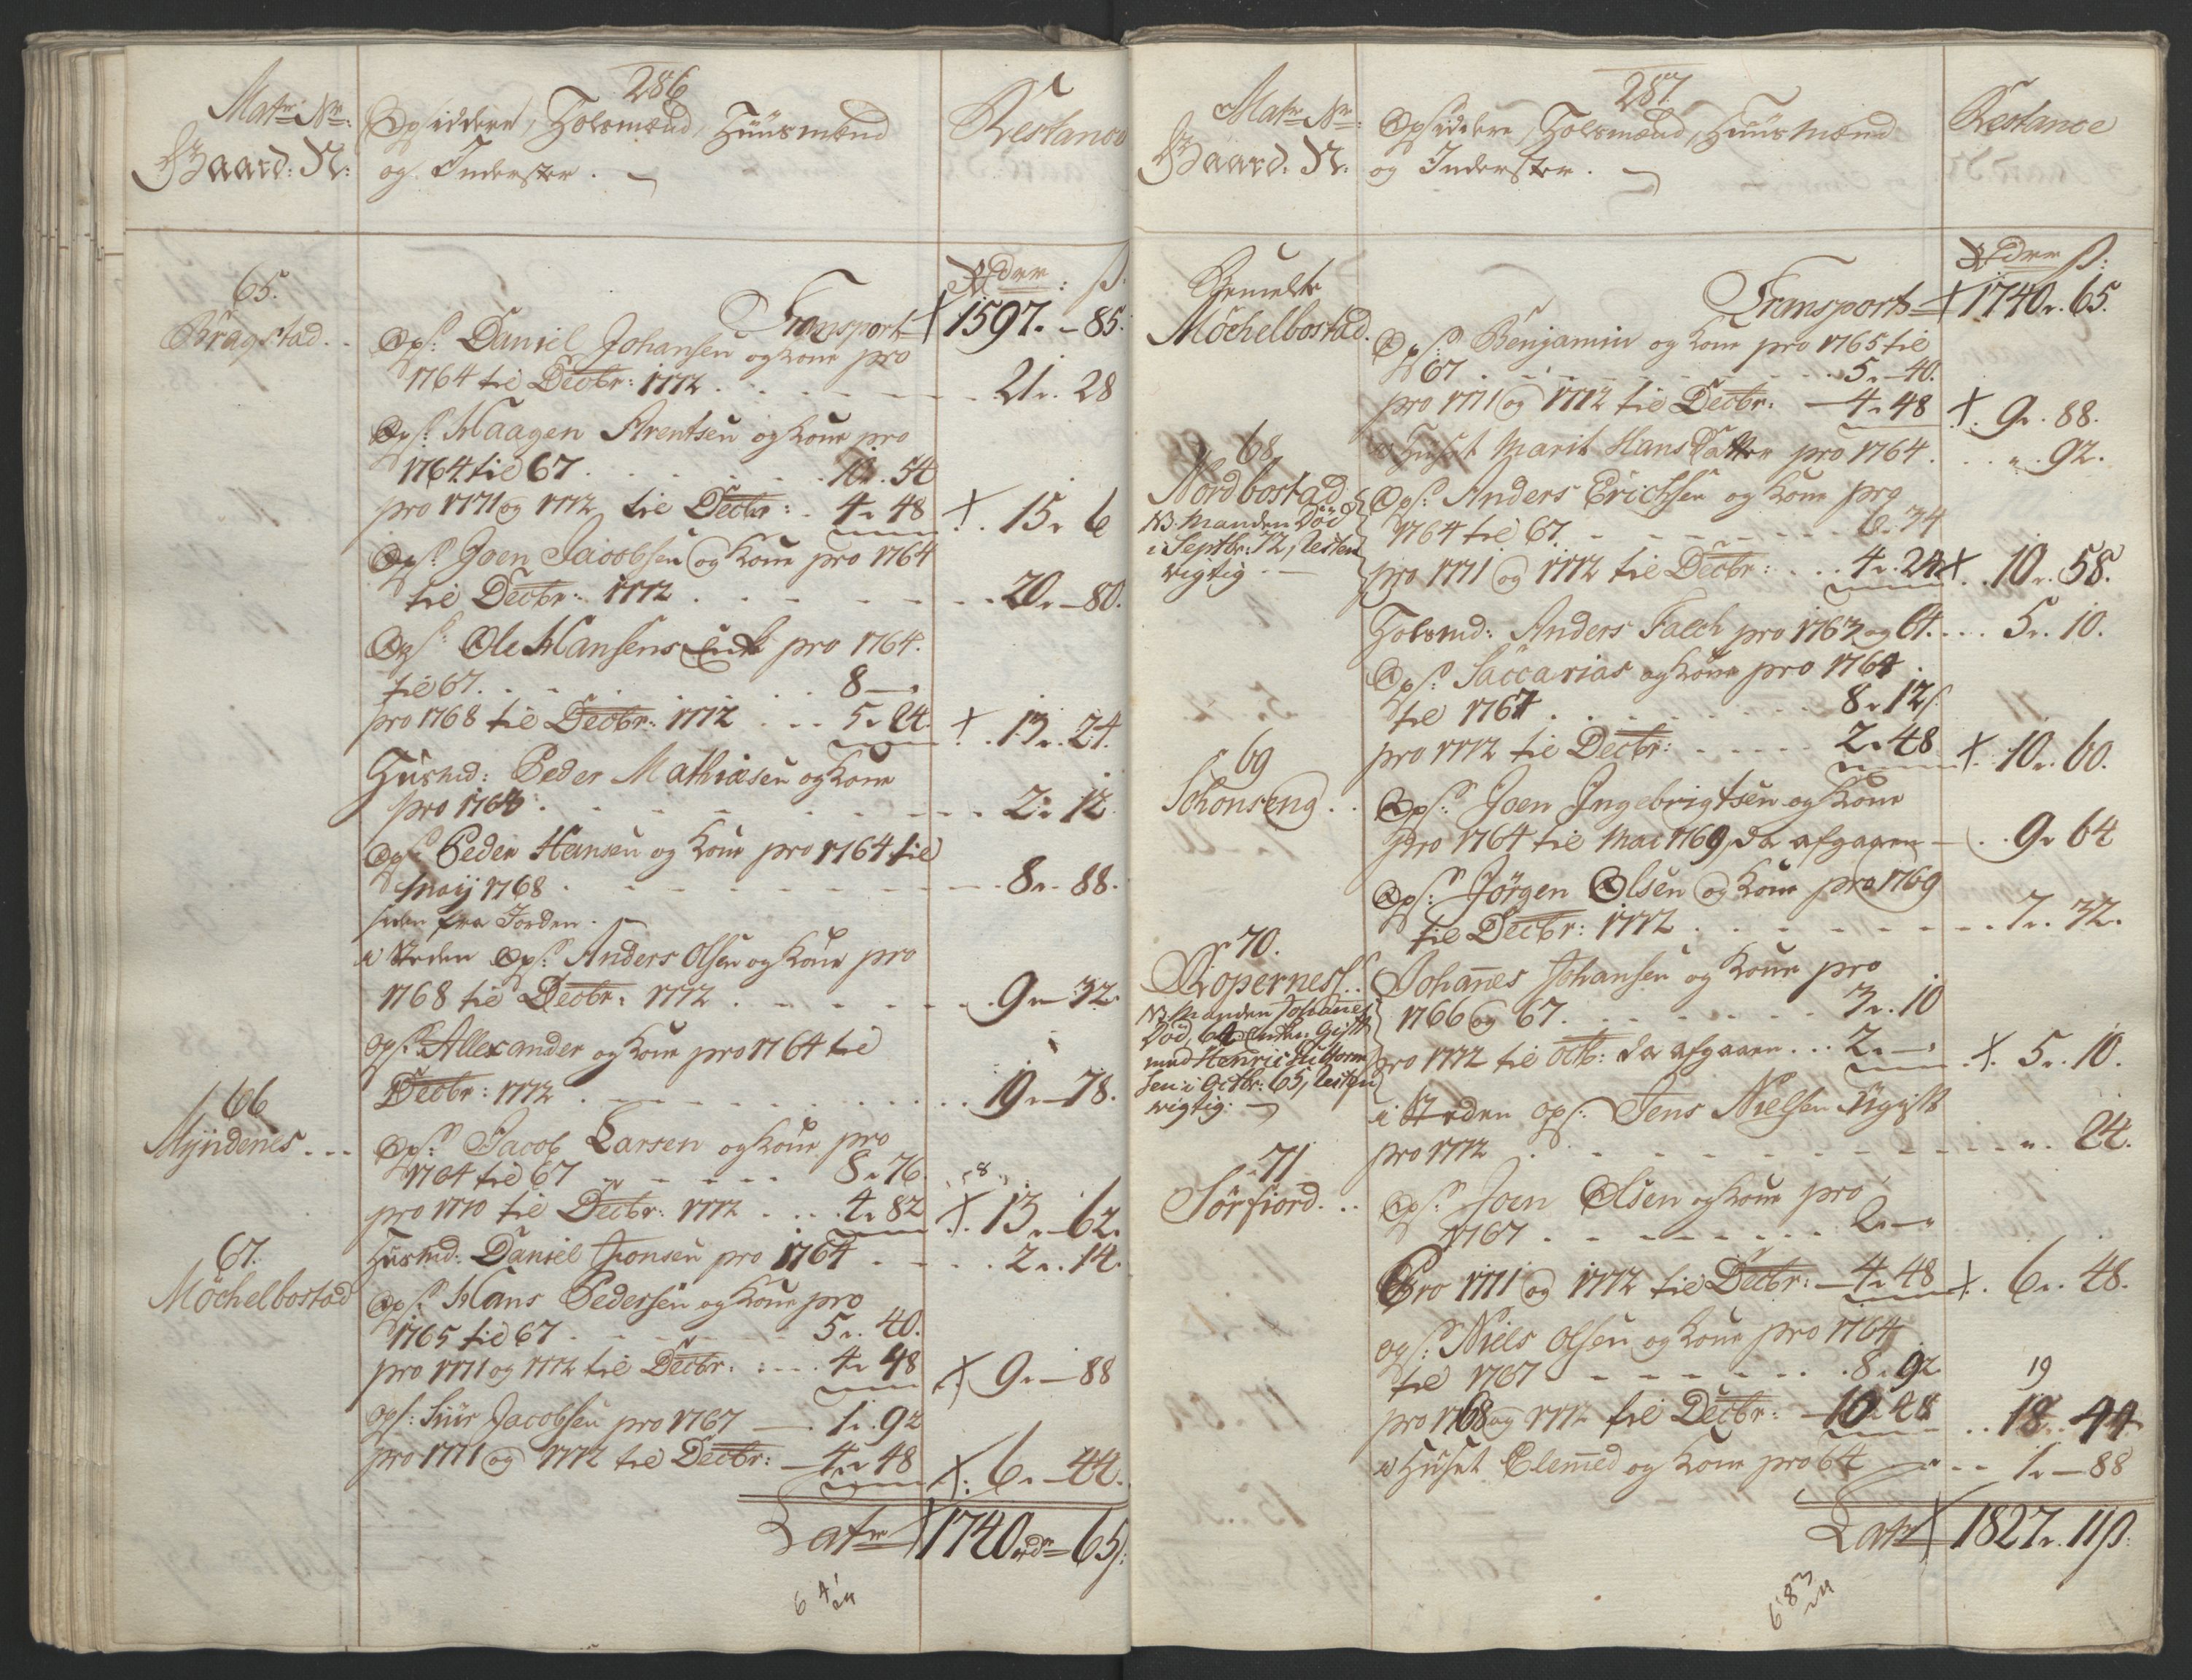 286
Matr: Nr:
Gaard: N:
Opsiddere, Holsmænd, Huusmænd
og Inderster.
Restance
Rdlr: ß.
Transport 1597. - 85.
65.
Kragstad.
Ops: Daniel Johansen og Kone pro
1764 til Decbr: 1772 . . . 21. 28
Ops: Haagen Arentsen og Kone pro
1764 til 67 . . . 10. 54
pro 1771 og 1772 til Decbr: . 4. 48 15. 6
Ops: Joen Jacobsen og Kone pro 1764
til Decbr: 1772 . . . 20. - 80.
Ops: Ole Hansens Enke pro 1764.
til 67. . . . 8 -
pro 1768 til Decbr: 1772 . . . 5. 24. 13. 24.
Husmd: Peder Mathiæsen og Kone
pro 1763 . . . 2. 12
Ops: Peder Hansen og Kone pro 1764 til
Maij 1768 . . . 8. - 88.
siden fra Jorden.
i Steden Ops: Anders Olsen og Kone pro
1768 til Decbr: 1772 . . . 9. - 32.
Ops: Allexander og Kone pro 1764 til
Decbr: 1772 . . . 19. - 78.
66
Myndenes . . .
Ops: Jacob Larsen og Kone pro
1764 til 67 . . . 8. 76.
8
pro 1770 til Decbr: 1772 . . . 4. 82 13. - 62.
Husmd: Daniel Jonsen pro 1764 . . . 2. 14.
67.
Möchelbostad
Ops: Hans Pedersen og Kone pro
1765 til 67 . . . 5. 40.
pro 1771 og 1772 til Decbr: . . . 4. 48 9. - 88
Ops: Siur Jacobsen pro 1767 - 1. 92
pro 1771 og 1772 til Decbr: - 4. 48 6. - 44.
Latr 1740 rdr - 65ß:
287.
Matr: Nr:
Gaard: N:
Opsiddere, Holsmænd, Huusmænd
og Inderster.
Restance
Rdlr ß:
Transport 1740. 65.
Gemelte
Möchelbostad.
Ops: Benjamin og Kone pro 1765 til
67 . . . 5. - 40.
pro 1771 og 1772 til Decbr: - 4. 48 9. 88.
i Huset Marit Hans Datter pro 1764 . . . 92.
68
Nordbostad
NB. Manden Död
i Septbr: 72, Resten
rigtig. -
Ops: Anders Erichsen og Kone pro
1764 til 67. . . . 6. 34
pro 1771 og 1772 til Decbr: . . 4. 24 10. 58.
Holsmd: Anders Falch pro 1763 og 64. . . 5. 10.
Ops: Saccarias og Kone pro 1764
til 1767 . . . 8. 12ß.
pro 1772 til Decbr: . . . 2. 48 10. 60.
69
Schonseng . .
Ops: Joen Ingebrigtsen og Kone
pro 1764 til Mai 1769, da afgaaen - . . 9. 64
Ops: Jörgen Olsen og Kone pro 1769
til Decbr: 1772 . . . 7. 32.
70.
NB. Manden Johannes
Död, 64 Enken Gift
med Henric
sen i Octbr: 65, Resten
rigtig:
Johannes Johansen og Kone pro
1766 og 67. . . . 3. 10
pro 1772 til Octb: da afgaaen . . . 2. - 5. 10.
i Steden Ops: Jens Nielsen Ugift
pro 1772 . . . 24.
71
Sörfiord. . .
Ops: Joen Olsen og Kone pro
1767 . . . 2. -
Pro 1771 og 1772 til Decbr: - 4. 48 6. 48.
Ops: Niels Olsen og Kone pro 1764
til 1767 - . . . 8. 92
19
pro 1768 og 1772 til Decbr: - 10. 48 . . 18. 44
i Huset Clemed og Kone pro 64 . . 1. - 88
Latr 1827. 11ß:
683